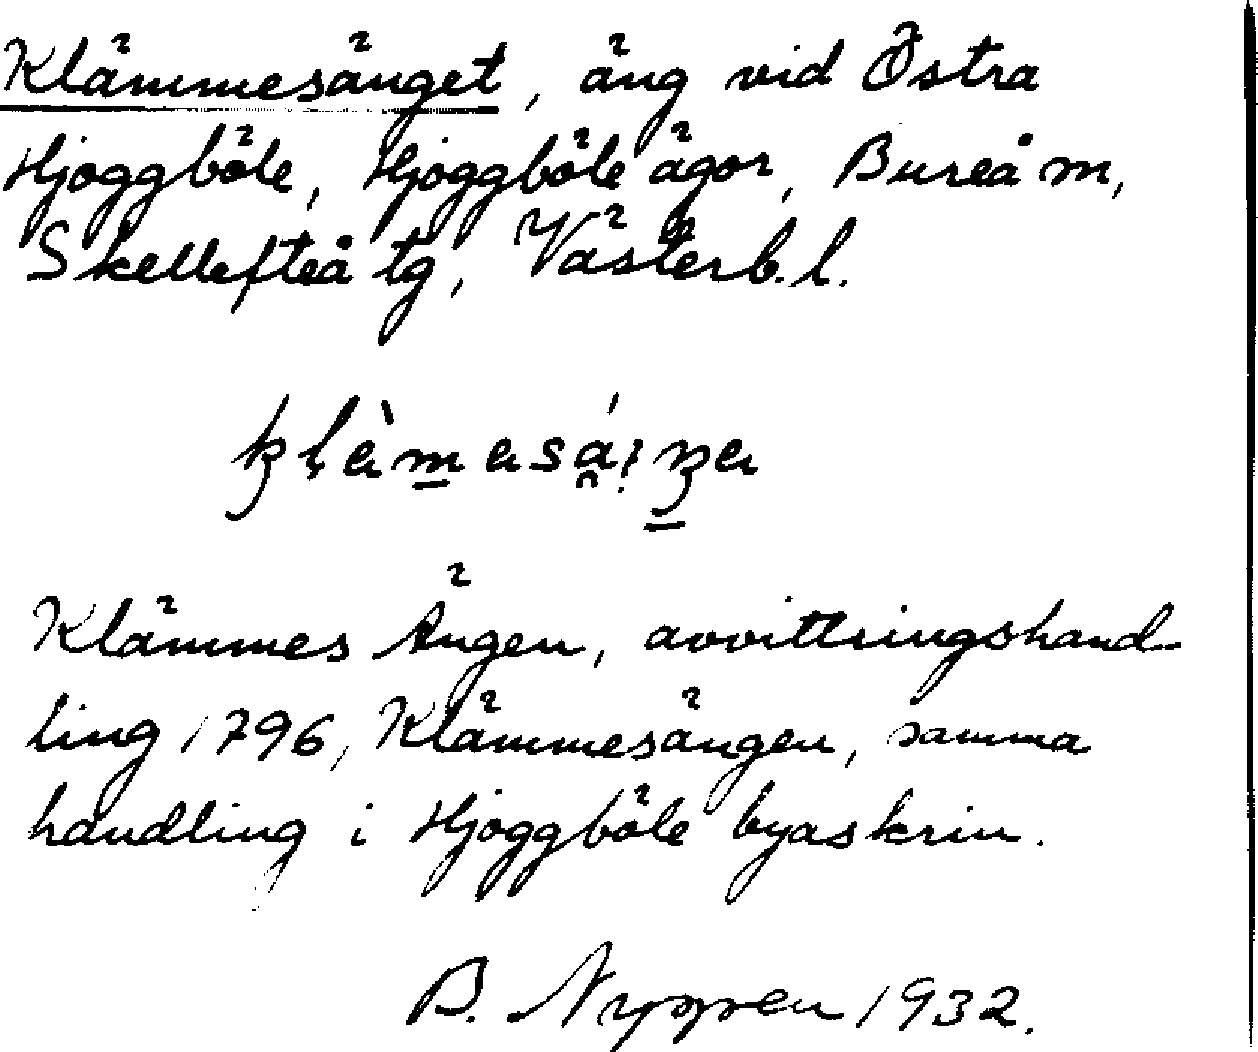 Klämmesänget, äng vid Östra
Hjoggböle, Hjoggböle ägor, Bureå m,
Skellefteå tg, Västerb. l.
Klämmes Ängen, avvittringshand-
ling 1796, Klämmesängen, samma
handling i Hjoggböle byaskrin.
B. Nygren 1932.